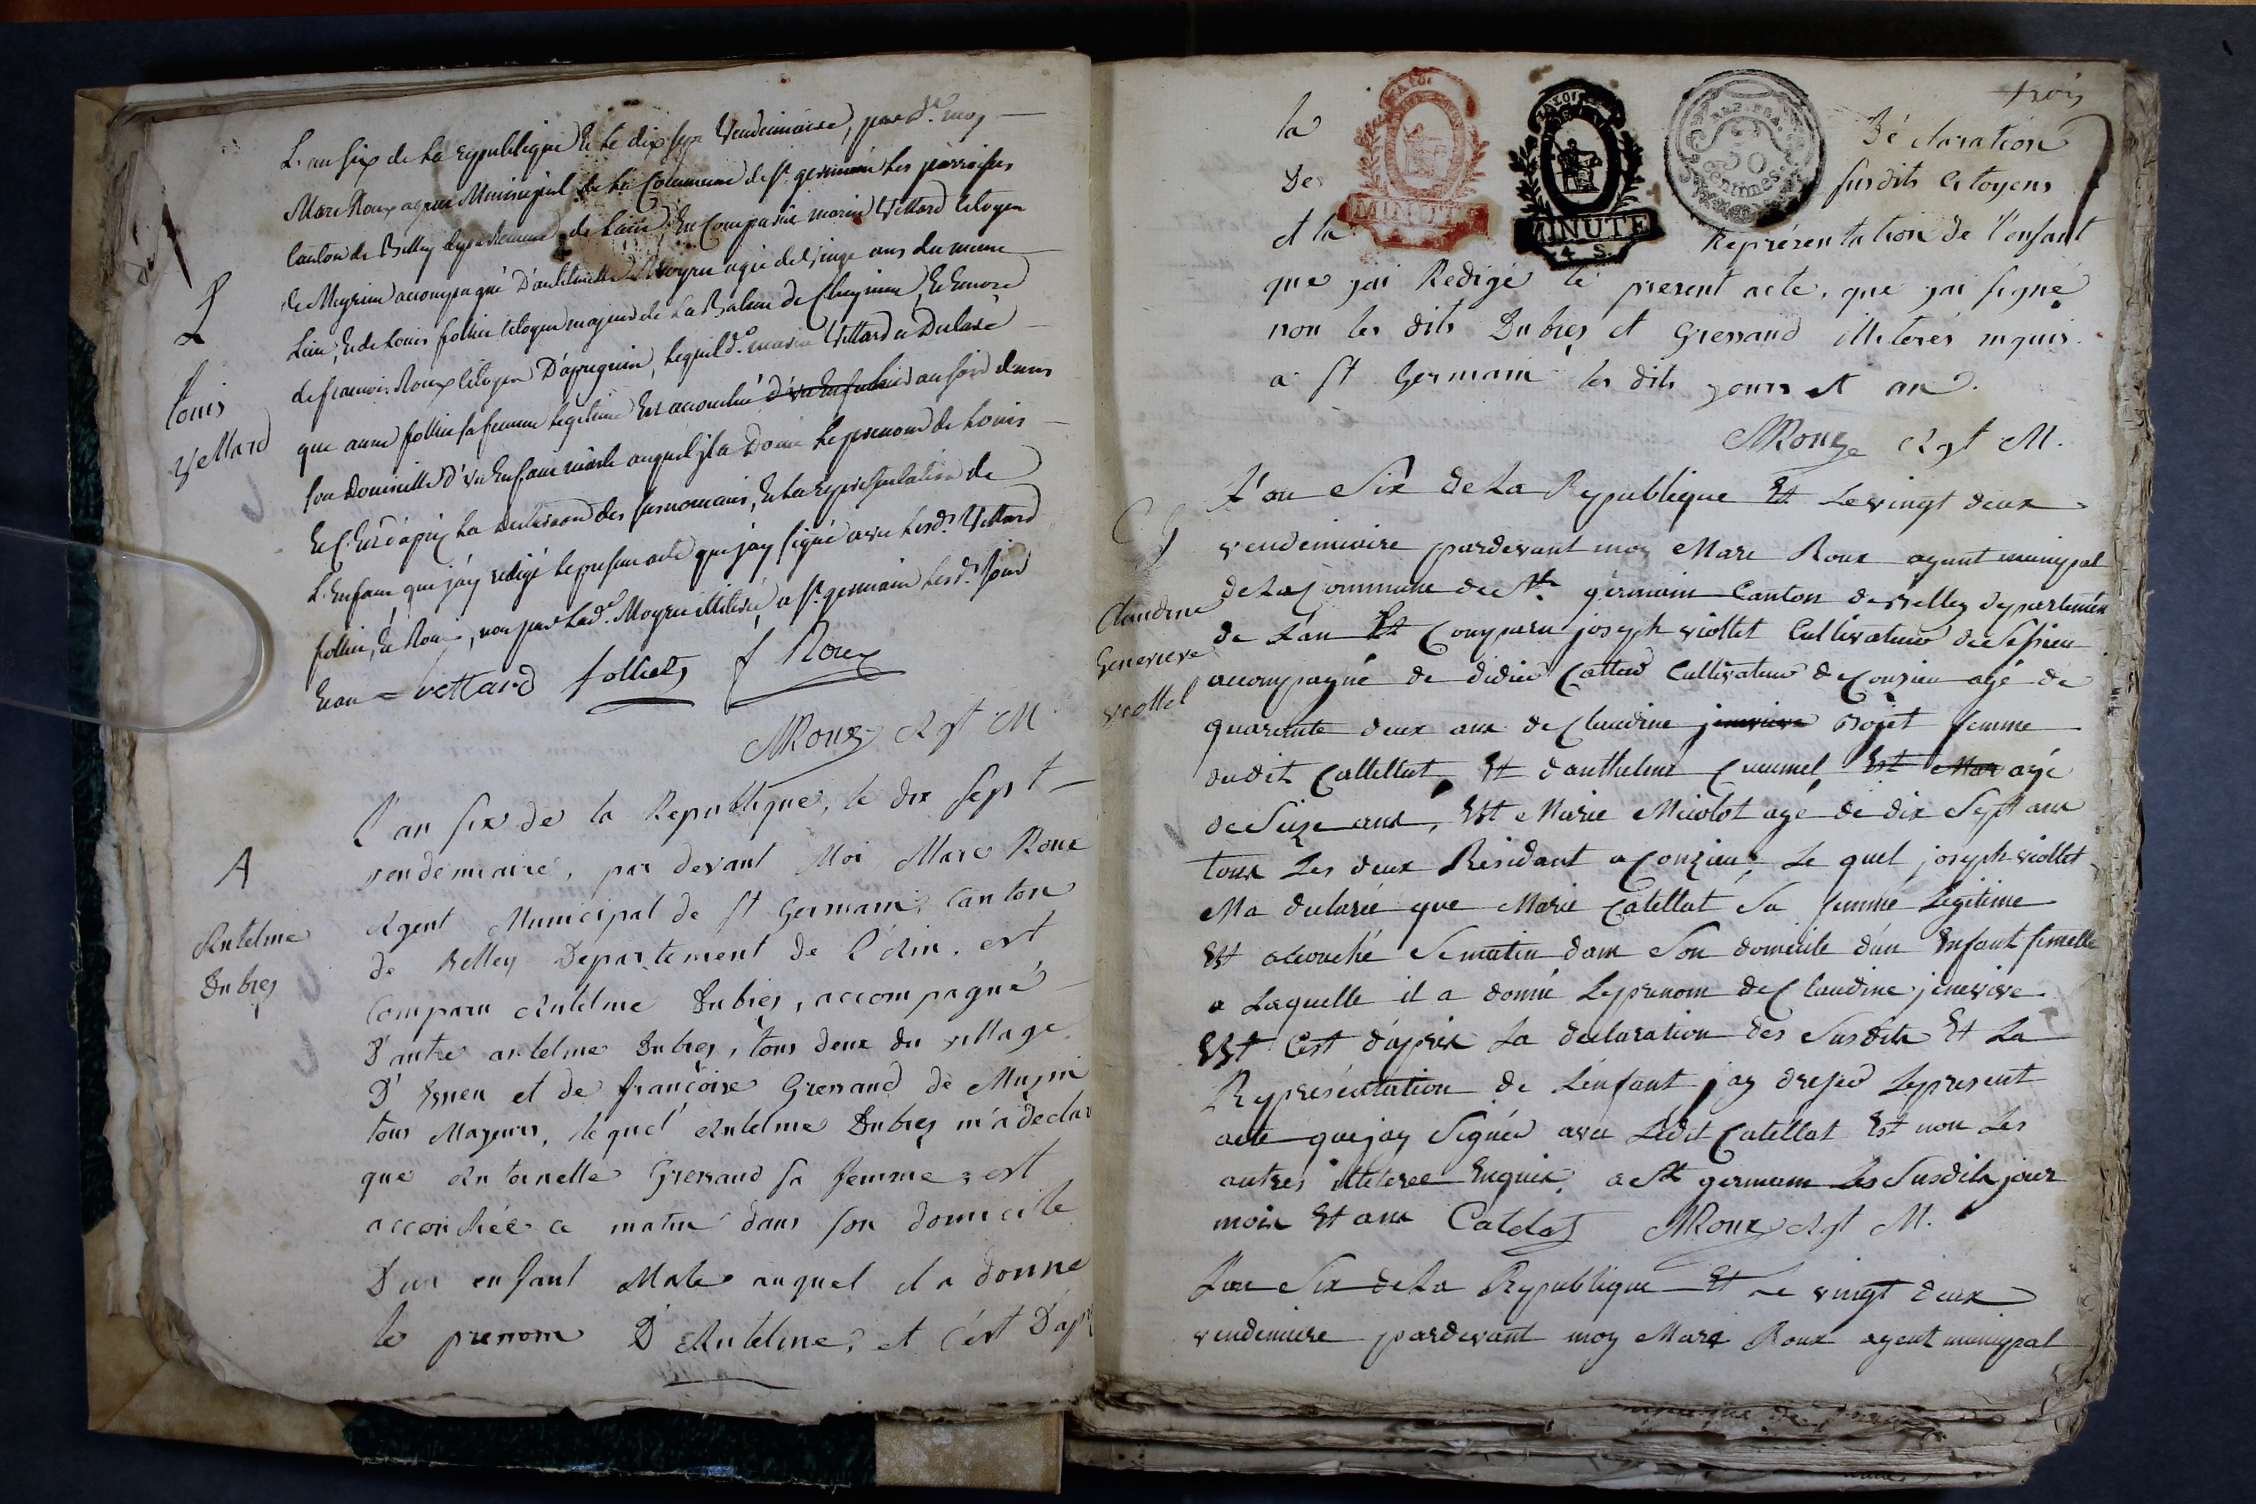 L'an six de la republique et le dix sept Vendemiaire, par dt. moy
Marc Roux agent Municipal de la Commune de st. germain les parroisses
Canton de Belley departement de Lain Est Comparu marin Vettard Citoyen
de Meyrieu accompagné D'anthelmette Moyne agée de Seize ans du meme
Lieu, et de Louis follier Citoyen majeur de La Balme de Cheyrieu, et encore
de francois Roux Citoyen D'apregnin, lequel dt. marin Vettard a Declaré
que anne follier sa femme legitime est accouchée au soir dans
son Domicille d'un Enfant masle auquel il a Donné le prenom de Louis
Et C'est d'après La declaration des susnommés, Et La representation de
L'enfant que j'ay redigé le present acte que j'ay signé avec Lesdts. Vettard
follier, et Roux, non pas Lade. Moyne illiterée, a st. germain Lesdts. jour
et an
vettard folliet f Roux
MRoux Agt M
L
Louis
Vettard
L'an six de la Republique, le dix sept
vendemiaire, par devant Moi Marc Roux
Agent Municipal de st Germain, Canton
de Belley Departement de l'Ain, est
Comparu Antelme Dubies, accompagné
D'autre antelme Dubies, tous deux du village
D'Essieu et de françoise Gressand de Musin
tous Majeurs, lequel Antelme Dubies m'a Declar
que Antoinette Gressand sa femme, est
accouchée ce matin dans son domicile
D'un enfant Male auquel il a donne
le prenom D'Antelme, et c'est D'apr
A
Antelme
Dubies
trois
la Déclaration
Des susdits Citoyens
et la Représentation de l'enfant
MINUTE
MINUTE
4 S.
REP. FRA.
50
Centimes
que jai Redigé le present acte, que jai signé
non les dits Dubies et Gressand illiterés requis
a st Germain les dits jours et an.
MRoux Agt M.
L'an Six de La Republique Et Le vingt deux
vendemiaire pardevant moy Marc Roux agent munipal
de La Commune de St. germain Canton de Belley departemen
de L'an Est Comparu joseph viollet Cultivateur de Essieu
accompagné de didier Catteld Cultivateur de Conzieu agé de
quarente deux ans de Claudine jenevieve Bojet femme
dudit Cattellat, Et d'anthelme Cuumel Est Mar agé
de Seize ans, Est Marie Miolot agé de dix Sept ans
tous Les deux Résidant a Conzieu, Le quel joseph viollet
Ma declarée que Marie Catellat Sa femme Legitime
Est accouché Se matin dans Son domicile d'un Enfant femelle
a Laquelle il a donné Le prenom de Claudine jenevieve
Est Cest d'aprix La declaration des Susdits Et La
Représentation de L'enfant jay dressé Lepresent
acte que jay Signér avec Ledit Catellat Est non Les
autres illiteree Enquix, a St germain Les Susdits jour
mois Et ans Catelat MRoux Agt M.
Claudine
Genevieve
viollet
L'an Six de La Republique Et Le vingt deux
vendemiere pardevant moy Marc Roux agent munipal